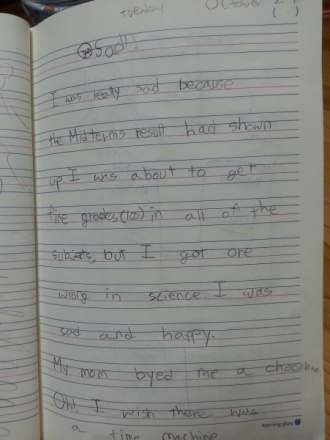 Tuesday October 2
( )
Sad!!
I was realy sad because
the Midterms result had shown
up. I was about to get
five grades(100) in all of the
subjects, but I got one
wrong in science. I was
sad and happy.
My mom byed me a chocolate
Oh! I wish there was
a time machine
morning glory